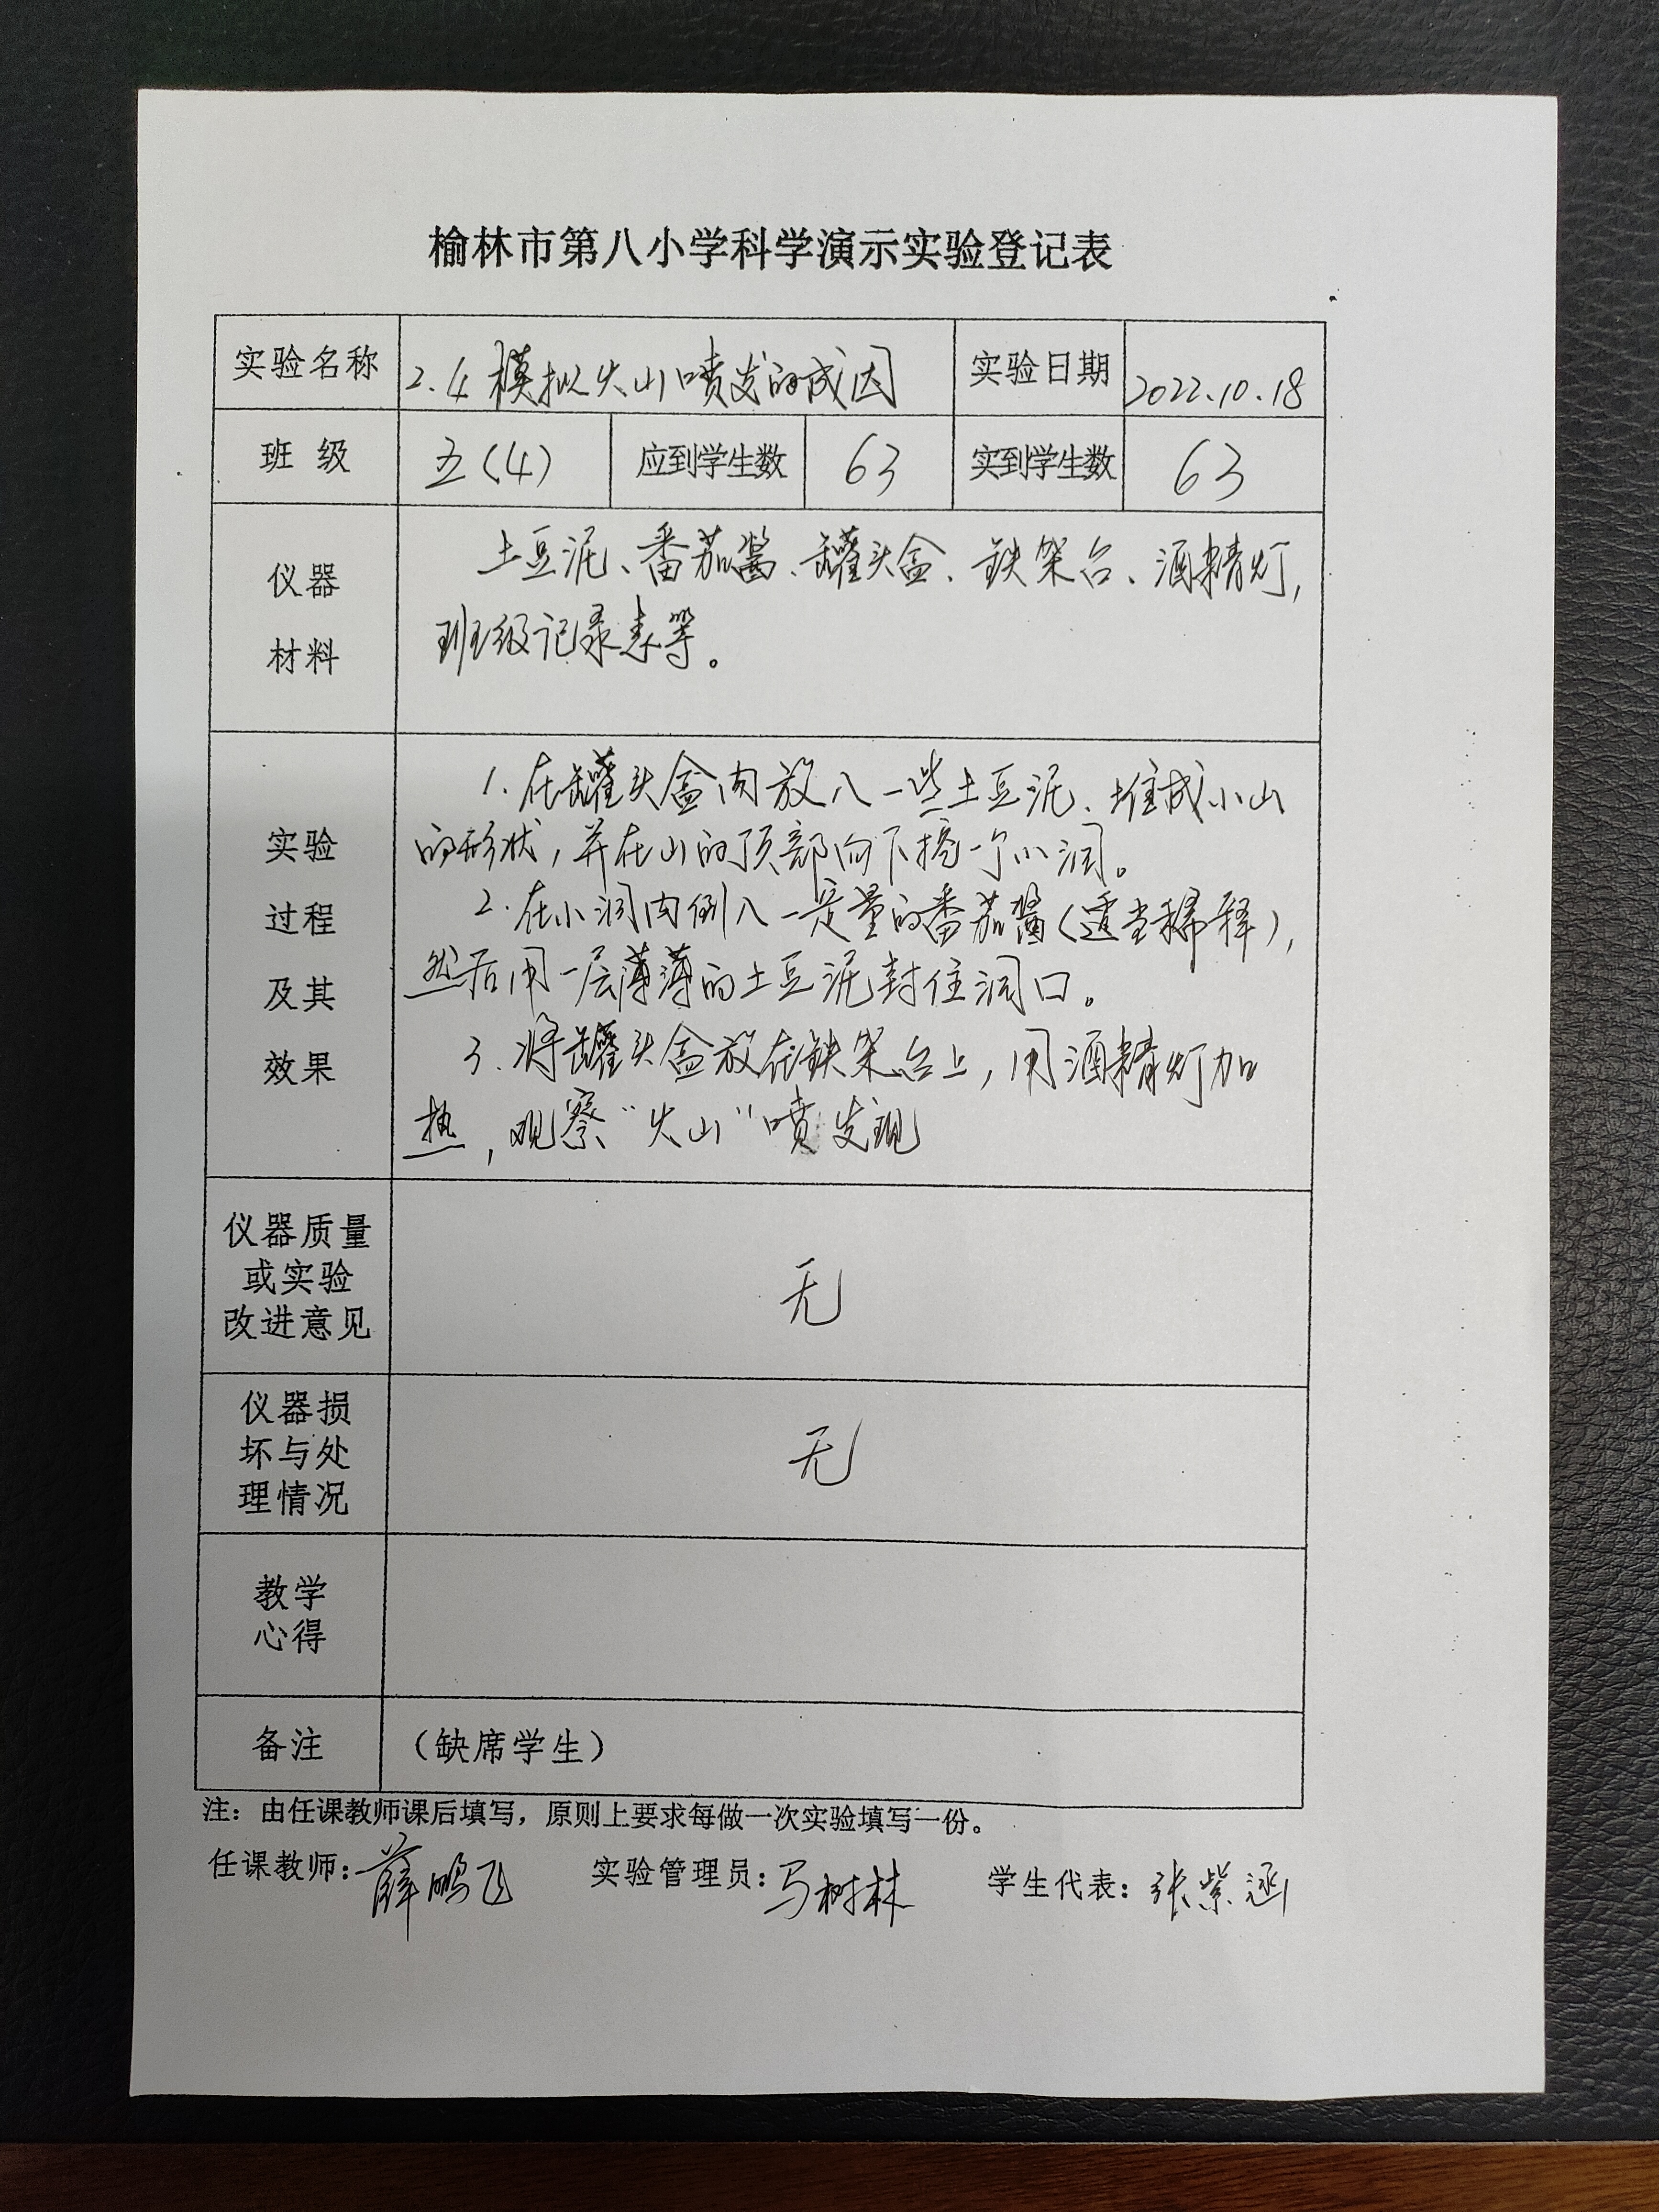 榆林市第八小学科学演示实验登记表
实验名称 2.4 模拟火山喷发的成因 实验日期 2022.10.18
班 级 五(4) 应到学生数 63 实到学生数 63
仪器
材料
土豆泥、番茄酱、罐头盒、铁架台、酒精灯,
班级记录表等。
实验
过程
及其
效果
1. 在罐头盒内放入一些土豆泥、堆成小山
的形状,并在山的顶部向下挖一个小洞。
2. 在小洞内倒入一定量的番茄酱(适当稀释),
然后用一层薄薄的土豆泥封住洞口。
3. 将罐头盒放在铁架台上,用酒精灯加
热,观察“火山”喷发现
仪器质量
或实验
改进意见
无
仪器损
坏与处
理情况
无
教学
心得
备注 (缺席学生)
注:由任课教师课后填写,原则上要求每做一次实验填写一份。
任课教师:薛鹏飞 实验管理员:马树林 学生代表:张紫涵